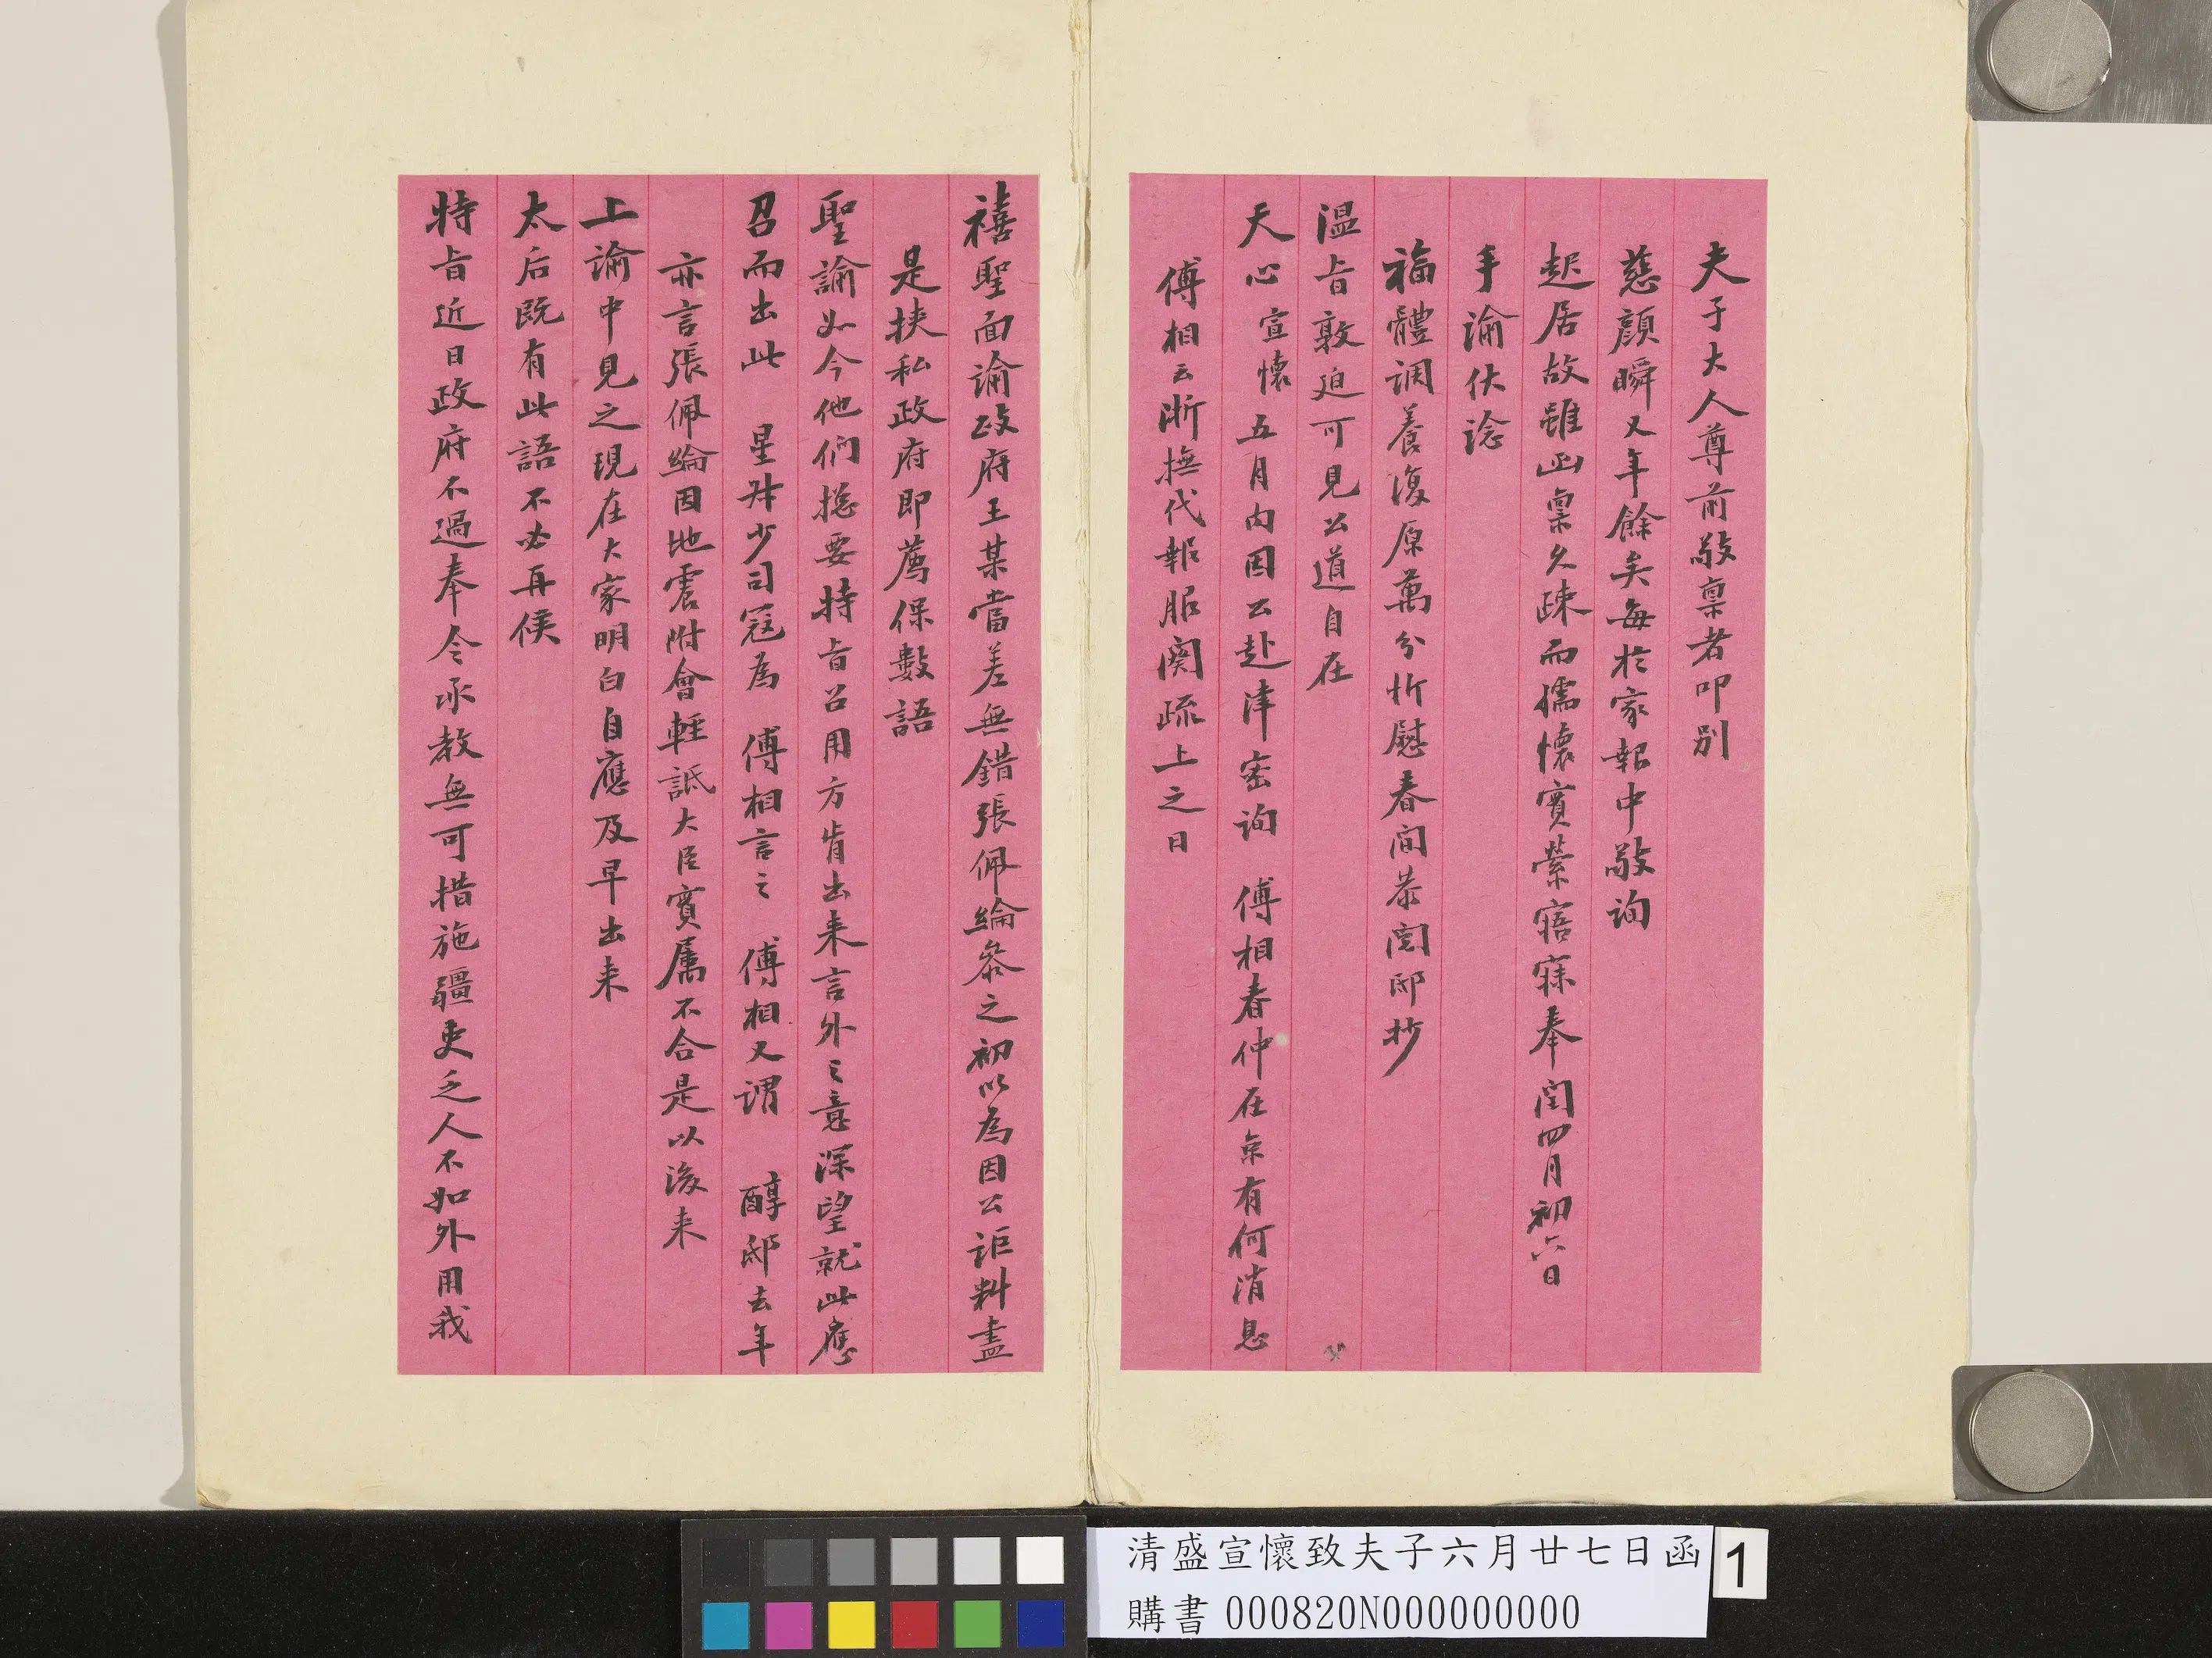 夫子大人尊前敬稟者叩別
慈顏瞬又年餘矣每於家報中敬詢
起居故雖函稟久疎而孺懷實縈寤寐奉閏四月初六日
手諭伏諗
福體調養復原萬分忻慰春間恭閱邸抄
溫旨敦迫可見公道自在
天心宣懷五月內因公赴津密詢 傅相春仲在京有何消息
傅相云浙撫代報服闋疏上之日
禧聖面諭政府王某當差無錯張佩綸叅之初以為因公詎料盡
是挾私政府即薦保數語
聖諭如今他們揔要特旨召用方肯出来言外之意深望就此應
召而出此 星叔少司寇為 傅相言之 傅相又謂 醇邸去年
亦言張佩綸因地震附會輕詆大臣實属不合是以後来
上諭中見之現在大家明白自應及早出来
太后既有此語不必再俟
特旨近日政府不過奉令承教無可措施疆吏乏人不如外用我
清盛宣懷致夫子六月廿七日函
購書 000820N000000000
1